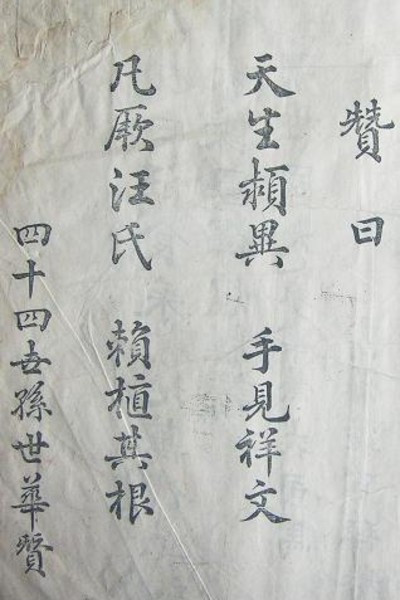 賛曰
天生頴異 手見祥文
凢厥汪氏 賴植其根
四十四卋孫世華賛